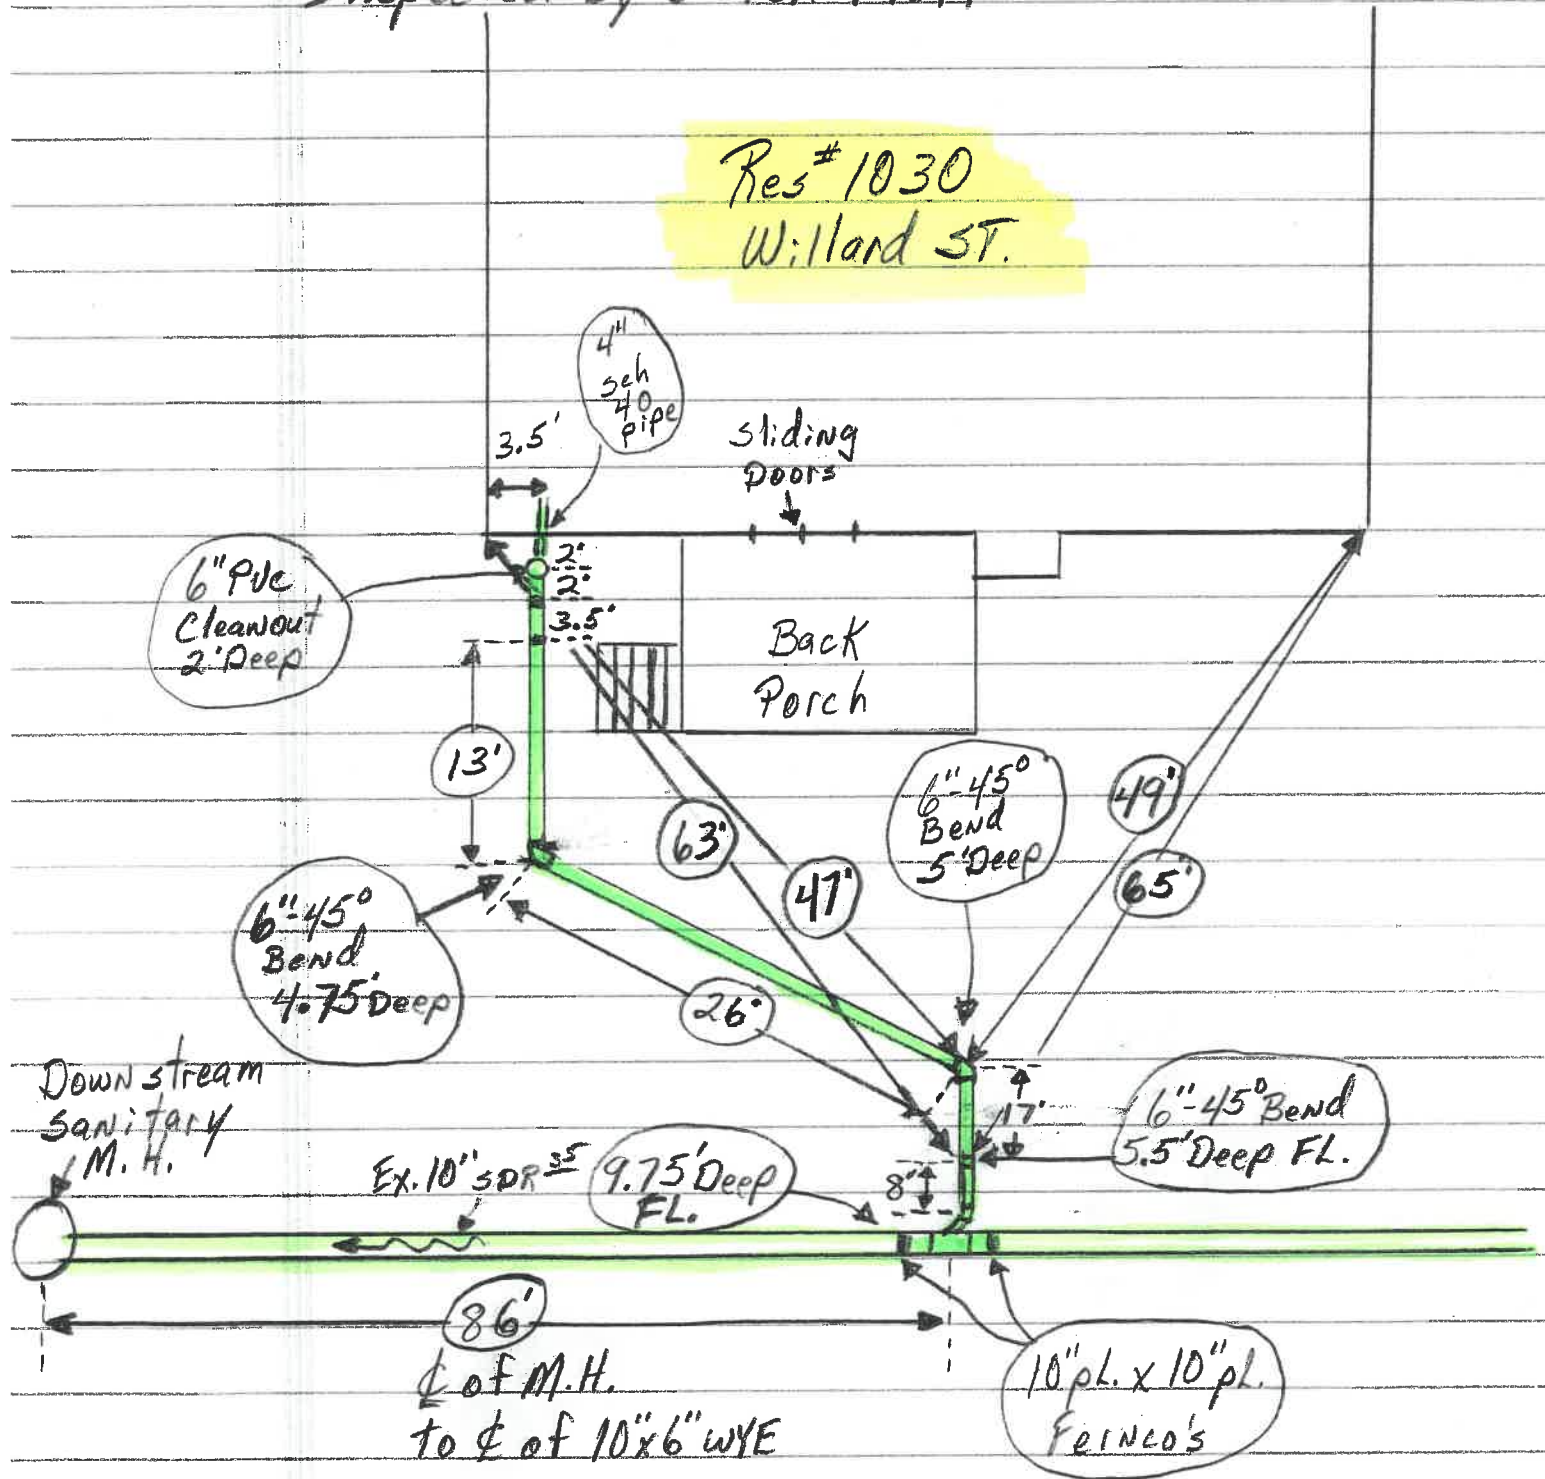 Inspected by
Res # 1030
Willard ST.
4"
sch
40
pipe
3.5'
Sliding
Doors
6" PVC
Cleanout
2' Deep
2'
2'
3.5'
Back
Porch
13'
6"-45°
Bend
5' Deep
49'
63'
47'
65'
6"-45°
Bend
4.75' Deep
26'
Downstream
Sanitary
M.H.
17'
6"-45° Bend
5.5' Deep FL.
Ex. 10" SDR 35
9.75' Deep
FL.
8'
86'
℄ of M.H.
to ℄ of 10"x6" WYE
10" pL. x 10" pL.
Fernco's